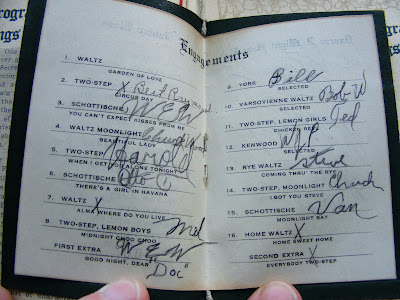 Engagements
1. WALTZ
GARDEN OF LOVE
2. TWO-STEP X Best
CIRCUS DAY
3. SCHOTTISCHE W E W
YOU CAN'T EXPECT KISSES FROM ME
4. WALTZ MOONLIGHT
BEAUTIFUL LADY
5. TWO-STEP Harold
WHEN I GET YOU ALONE TONIGHT
6. SCHOTTISCHE Otto
THERE'S A GIRL IN HAVANA
7. WALTZ X
ALMA WHERE DO YOU LIVE
8. TWO-STEP, LEMON BOYS Mel
MIDNIGHT CHOO CHOO
FIRST EXTRA W E W
GOOD NIGHT, DEAR
"Doc"
9. YORK Bill
SELECTED
10. VARSOVIENNE WALTZ Bob W
SELECTED
11. TWO-STEP, LEMON GIRLS Jed
CHICKEN REEL
12. KENWOOD
SELECTED
13. RYE WALTZ Steve
COMING THRU THE RYE
14. TWO-STEP, MOONLIGHT Chuck
I GOT YOU STEVE
15. SCHOTTISCHE Van
MOONLIGHT BAY
16. HOME WALTZ X
HOME SWEET HOME
SECOND EXTRA X
EVERYBODY TWO-STEP